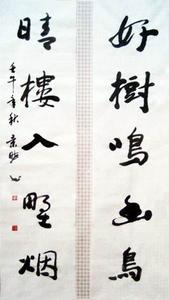 好樹鳴幽鳥
晴樓入野烟
壬午年秋